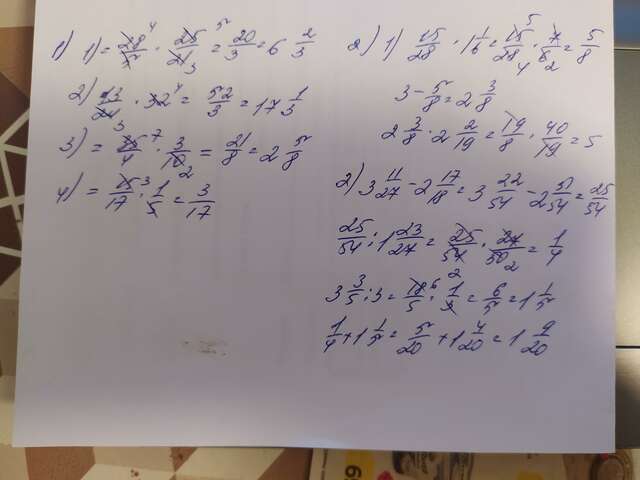 1) 1) = 28⁴/5 · 25⁵/21₃ = 20/3 = 6 2/3
2) 13/24₃ · 32⁴ = 52/3 = 17 1/3
3) = 35⁷/4 · 3/10₂ = 21/8 = 2 5/8
4) = 15³/17 · 1/5 = 3/17
2) 1) 15/28 · 1 1/6 = 15⁵/28₄ · 7/6₂ = 5/8
3 - 5/8 = 2 3/8
2 3/8 · 2 2/19 = 19/8 · 40/19 = 5
2) 3 11/27 - 2 17/18 = 3 22/54 - 2 51/54 = 25/54
25/54 : 1 23/27 = 25/54₂ · 27/50₂ = 1/4
3 3/5 : 3 = 18⁶/5 · 1/3 = 6/5 = 1 1/5
1/4 + 1 1/5 = 5/20 + 1 4/20 = 1 9/20